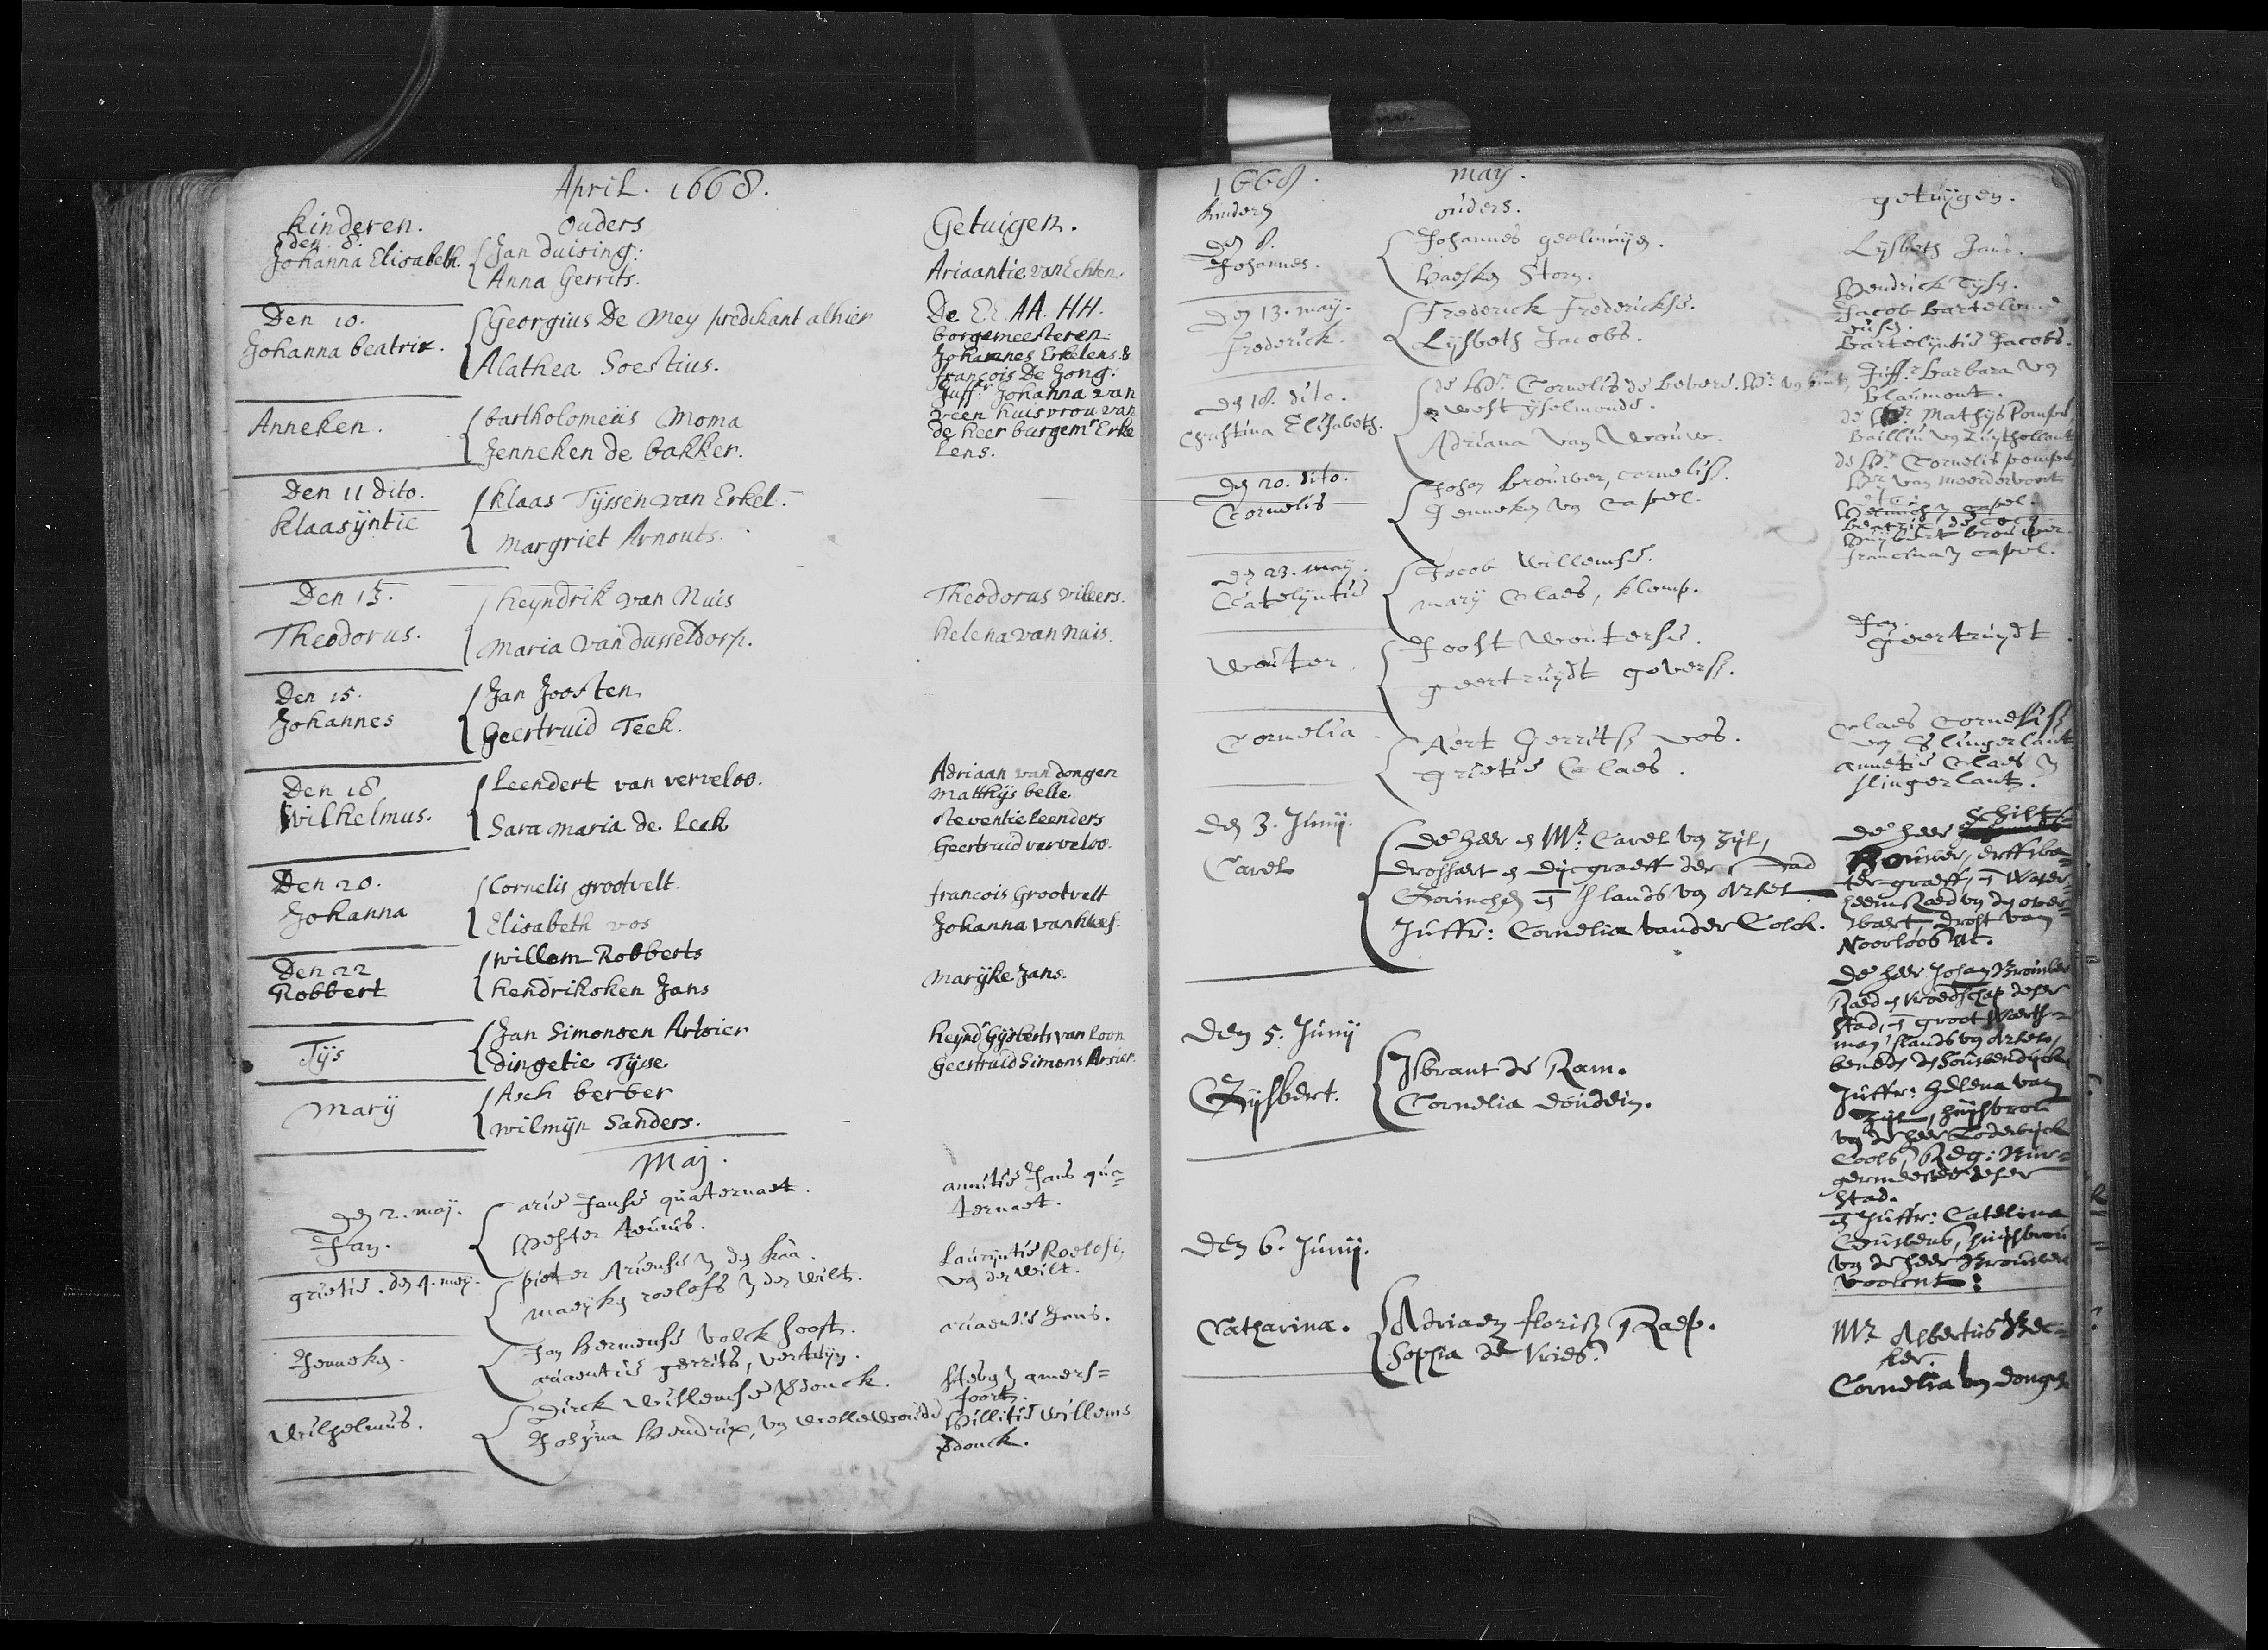 April. 1668.
kinderen. Ouders Getuigen.
den. 8.
Johanna Elisabeth. Jan duising:
Anna Gerrits.
Ariaantie van Echten.
Den 10.
Johanna beatrix.
Georgius De Mey predikant alhier
Alathea Soestius.
De EE. AA. HH.
borgemeesteren
Johannes Erkelens. &
françois De Jong:
Juffr. Johanna van
veen huisvrou van
de heer burgemr Erke
lens.
Anneken.
bartholomeüs Moma
Jenneken de bakker.
Den 11 dito.
klaasÿntie
klaas Tÿssen van Erkel.
Margriet Arnouts.
Den 13.
Theodorus.
heyndrik van Nuis
Maria van dusseldorp.
Theodorus villers.
helena van nuis.
Den 15.
Johannes
Jan Joosten
Geertruid Teek.
Den 18
Wilhelmus.
Leendert van verveloo.
Sara Maria de Leeh
Adriaan van dongen
Matthÿs belle.
steventie leenders
Geertruid verveloo.
Den 20.
Johanna
Cornelis grootvelt.
Elisabeth vos
francois Grootvelt
Johanna van kleef.
Den 22
Robbert
willem Robberts
hendriksken Jans
Marÿke Jans.
Tÿs
Jan Simonsen
dingetie Tÿsse
heynd. Gysberts van loon
Geertruid Simons
Marÿ
Asch berber
wilmÿn Sanders.
Maj.
den 2. maÿ.
Jan.
arie Janse quaternaet.
Hester teunis.
annitie Jans qua=
ternaet.
grietie. den 4. meÿ.
pieter Ariense
maeÿken roelofs
Laurÿntie Roelofs,
vn der Wilt.
Jenneken.
Jan Hermense valck hooft.
ariaentie gerrits,
ariaentie Jans.
Wilhelmus.
Dirck Willemse
Josÿna Hendrix,
amers=
foort.
Hillitie Willems
1668. maÿ.
kinders ouders. getuÿgen.
den 8.
Johannes.
Johannes geelmuÿden.
Storm.
Lÿsbeth Jans.
den 13. maÿ.
frederick.
Frederick Frederickse.
Lÿsbeth Jacobs.
Hendrick Tÿsse.
Jacob bartelome
eusen.
bartelÿntie Jacobs.
den 18. dito.
Christina Elisabeth.
de Hr. Cornelis de bevere
west ÿselmonde.
Adriana van Wouw.
Juffr. barbara vn
blaumont.
de Hr Mathÿs Pompe
Bailliu vn Zuÿthollant
de Hr. Cornelis pompe
Hr van meerdervoort
den 20. dito.
Cornelis
Johan brouwer, cornelisz.
Jenneken vn Capel.
brouwer.
francina capel.
den 23. maÿ.
Catelÿntie
Jacob Willemse.
marÿ Claes, klomp.
Wouter.
Joost Wouterse.
geertruÿdt goverse.
Jan.
geertruÿdt
Cornelia.
Aert Gerritsz vos.
grietie Claes.
Claes Cornelisz
vn Slingerlant.
annetie Claes
slingerlant.
den 3. Junij.
Carel
De heer en Mr. Carel vn Zÿl,
drossaert en dÿcgraeff der Stad
Gorinchem lands vn Arkel
Juffr: Cornelia vander Colck.
De heer Schilt
graeff,
heemraed
drost van
Noorloos
De heer Johan Brouwer
Raed en vroedschap deser
Stad, groot
lands vn Arkel
Juffr: Helena van
Zÿl, huÿsvrou
vn de heer Lodewÿck
Cools, Reg: Bur=
germeester deser
stad.
Juffr: Catelina
huÿsvrou
vn de heer Brouwer
voornt:
Den 5. Junij
Gÿsbert.
Isbrant de Ram.
Cornelia doudein.
Den 6. Junij.
Catharina.
Adriaen florisz Raep.
Sophia de Vries.
Mr Albertus Bec=
ker.
Cornelia vn Dongen